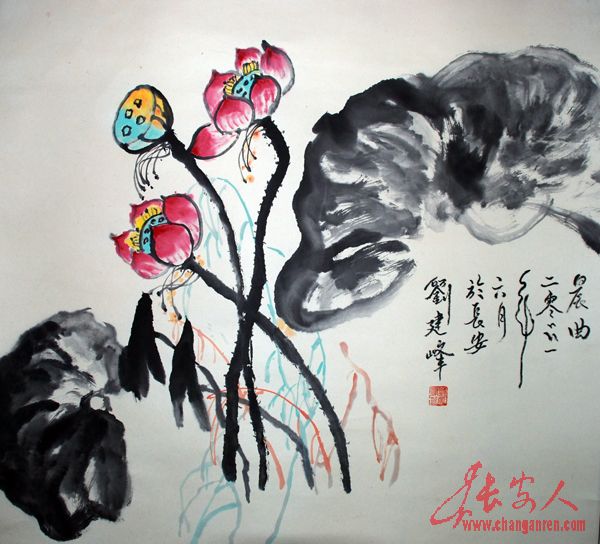 晨曲
二零
年
六月
於長安
劉建峰
长安人
www.changanren.com